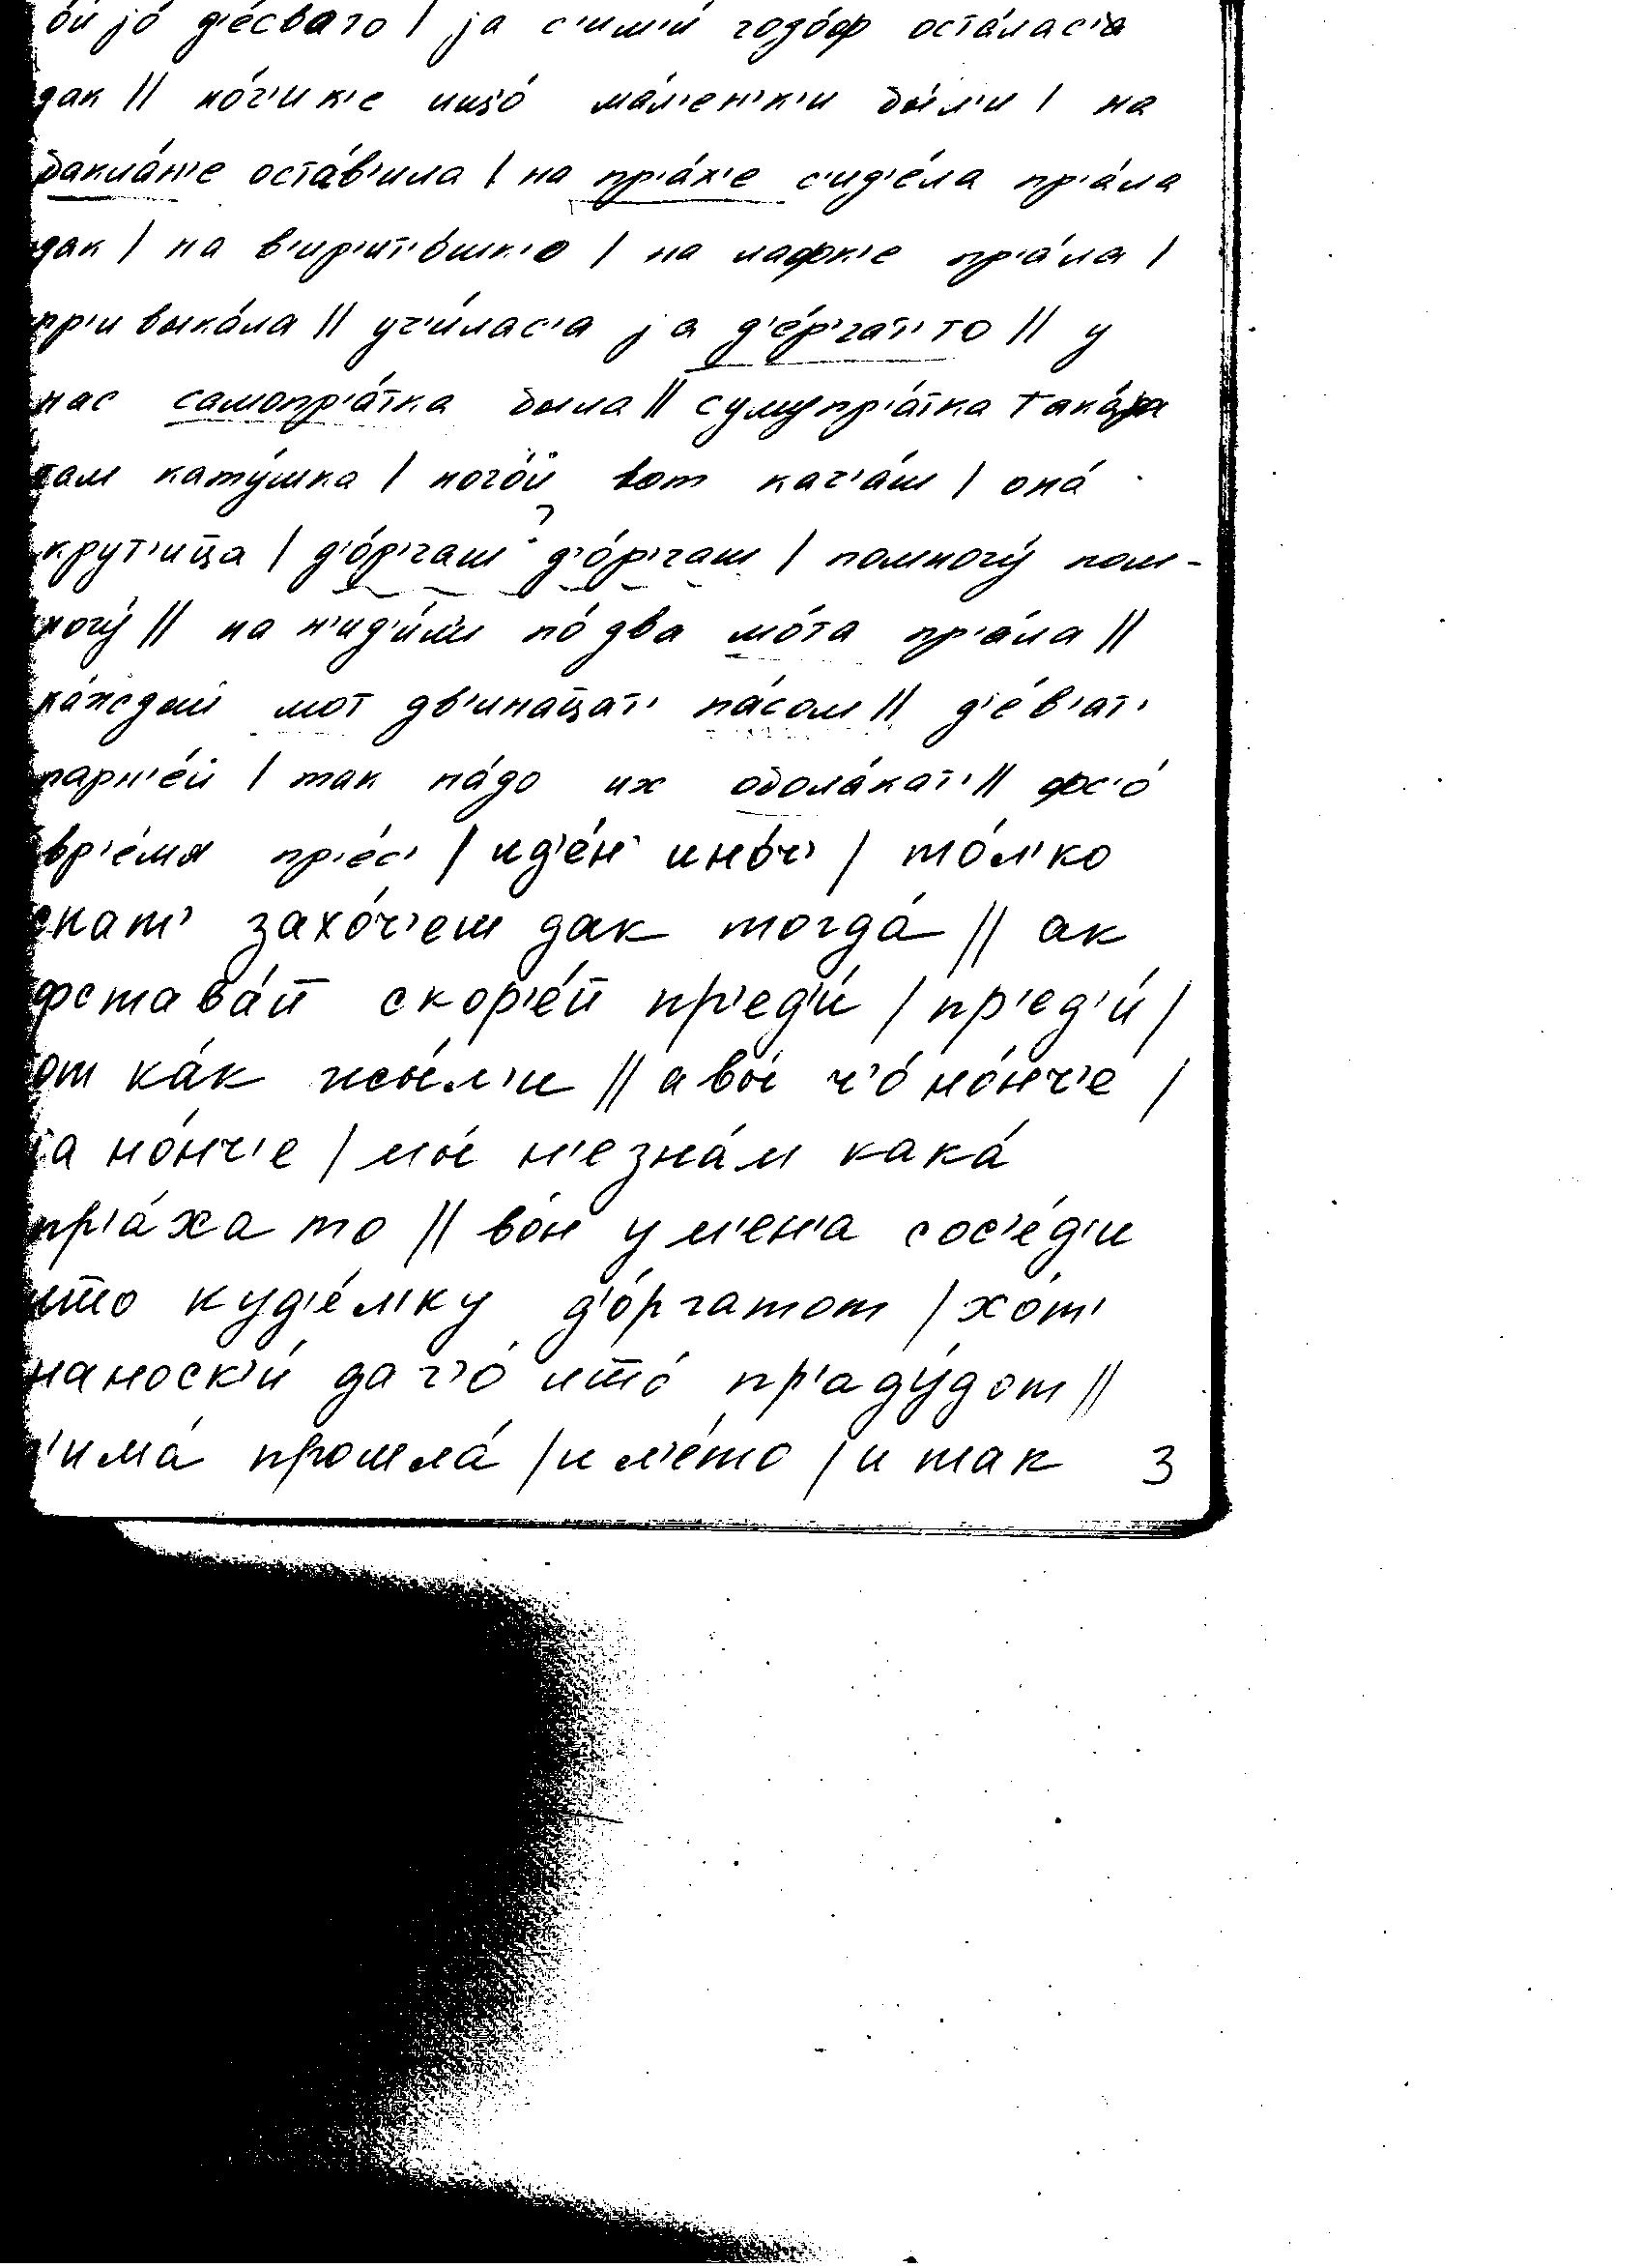 ой jо́ д'е́сваго | jа с'им'и́ годо́ф оста́лас'а
дак || но́г'и н'е ищо́ ма́л'ен'к'и бы́л'и | на
бакла́н'е оста́в'ила | на пр'а́х'е с'ид'е́ла пр'а́ла
дак | на в'ир'ит'о́шк'о | на лафк'е пр'а́ла |
пр'ивыка́ла || уч'и́лас'а jа д'е́р'гат' то || у
нас самопр'а́тка была || сумупр'а́тка така́jа
там кату́шка | ного́й вот кач'а́ш | она́
крут'ица | д'о́р'гаш д'о́р'гаш | помногу́ пом-
ногу́ || на н'ид'и́л'и по́ два мо́та пр'а́ла ||
ка́ждый мот дв'инацат' па́сом || д'е́в'ат'
парн'е́й | так на́до их обола́кат' || фс'о́
вр'е́мя пр'е́с' | ид'е́н' ино́ч' | то́л'ко
спат' захо́ч'еш дак тогда́ || ак
фстава́й скор'е́й пр'ед'и́ | пр'ед'и́ |
от ка́к жы́л'и || а вы́ ч'о́ но́нч'е |
та но́нч'е | мы́ н'е зна́м кака́
пр'а́ха то || во́н у м'ен'а сос'е́д'и
што куд'е́л'ку д'о́ргатот | хо́т'
на носк'и́ да ч'о́ што́ пр'аду́дот ||
з'има́ прошла́ | и л'е́то | и так 3